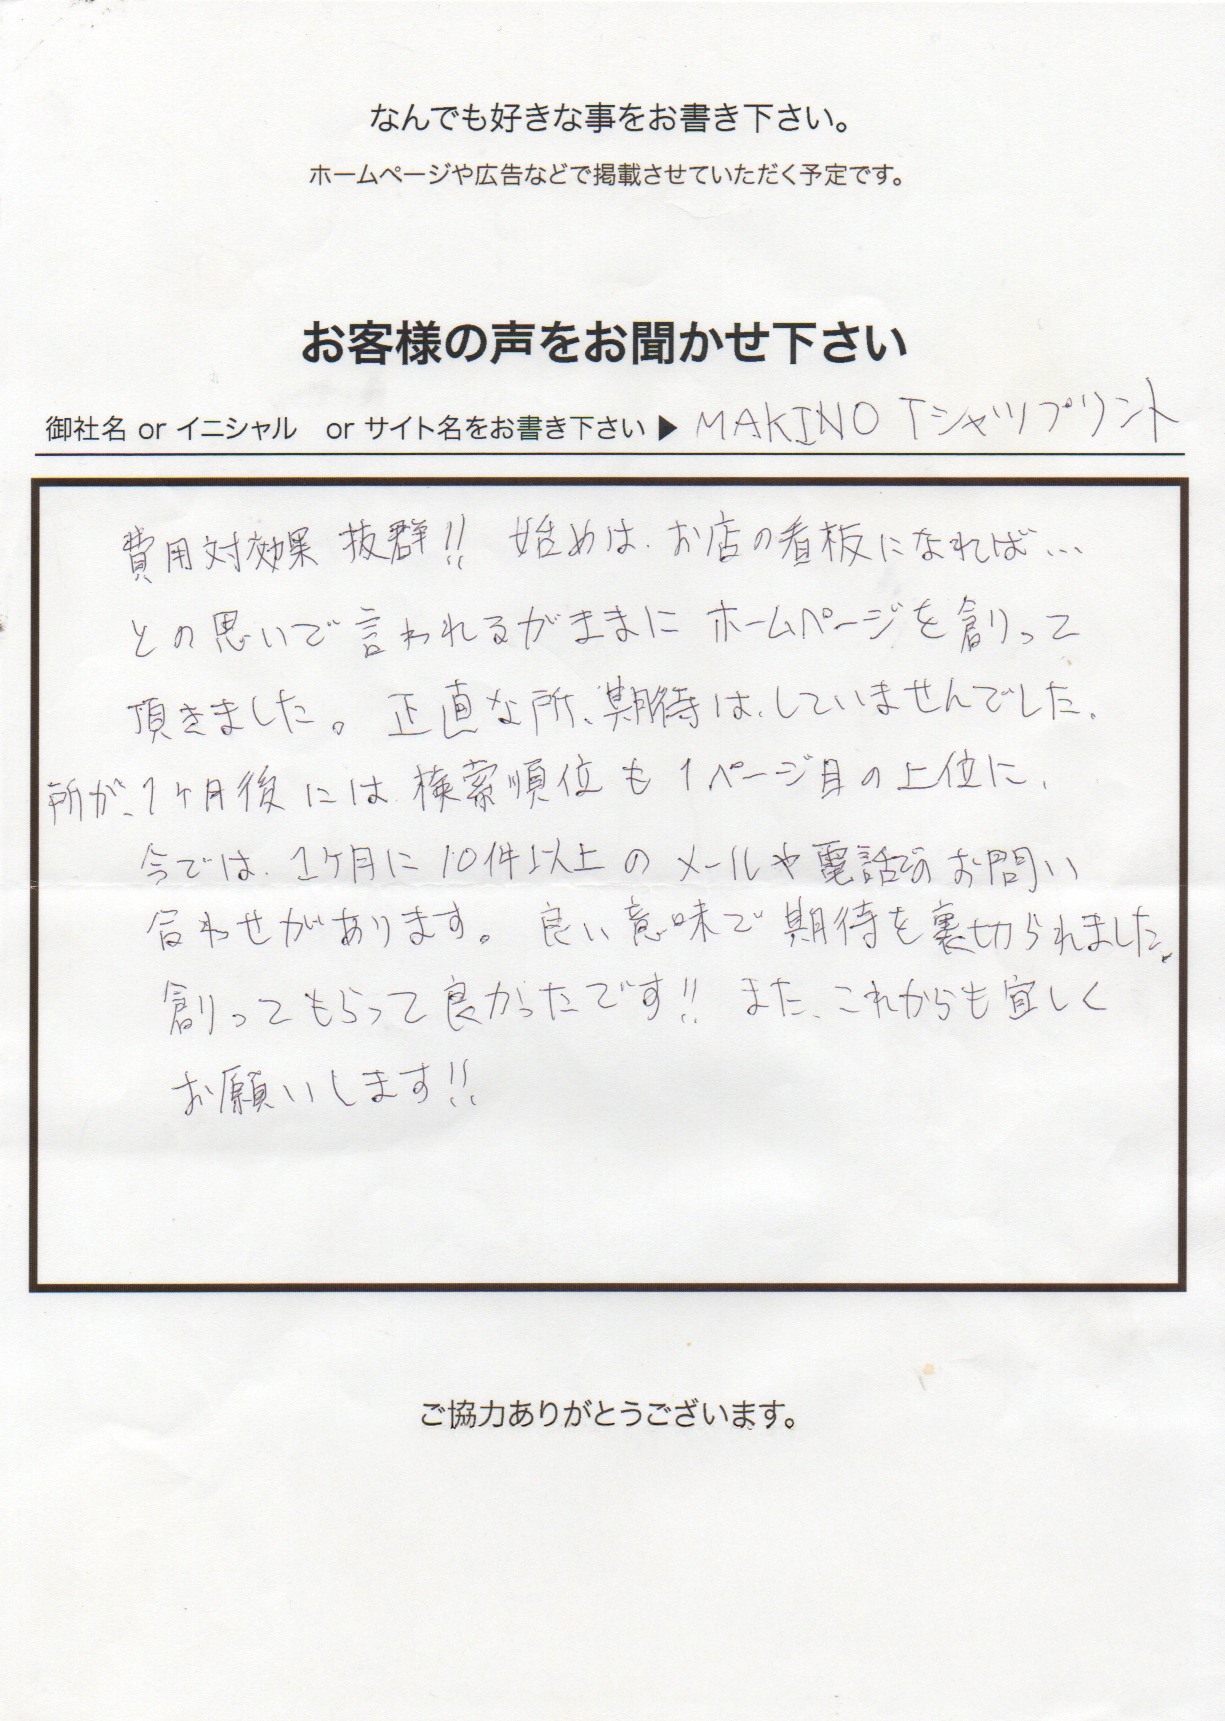 なんでも好きな事をお書き下さい。
ホームページや広告などで掲載させていただく予定です。
お客様の声をお聞かせ下さい
御社名 or イニシャル or サイト名をお書き下さい ▶ MAKINO Tシャツプリント
費用対効果 抜群!! 始めは、お店の看板になれば…
との思いで言われるがままに ホームページを創って
頂きました。正直な所、期待は、していませんでした、
所が、1ヶ月後には、検索順位も1ページ目の上位に、
今では、1ヶ月に10件以上のメールや電話でのお問い
合わせがあります。良い意味で期待を裏切られました。
創ってもらって良かったです!! また、これからも宜しく
お願いします!!
ご協力ありがとうございます。